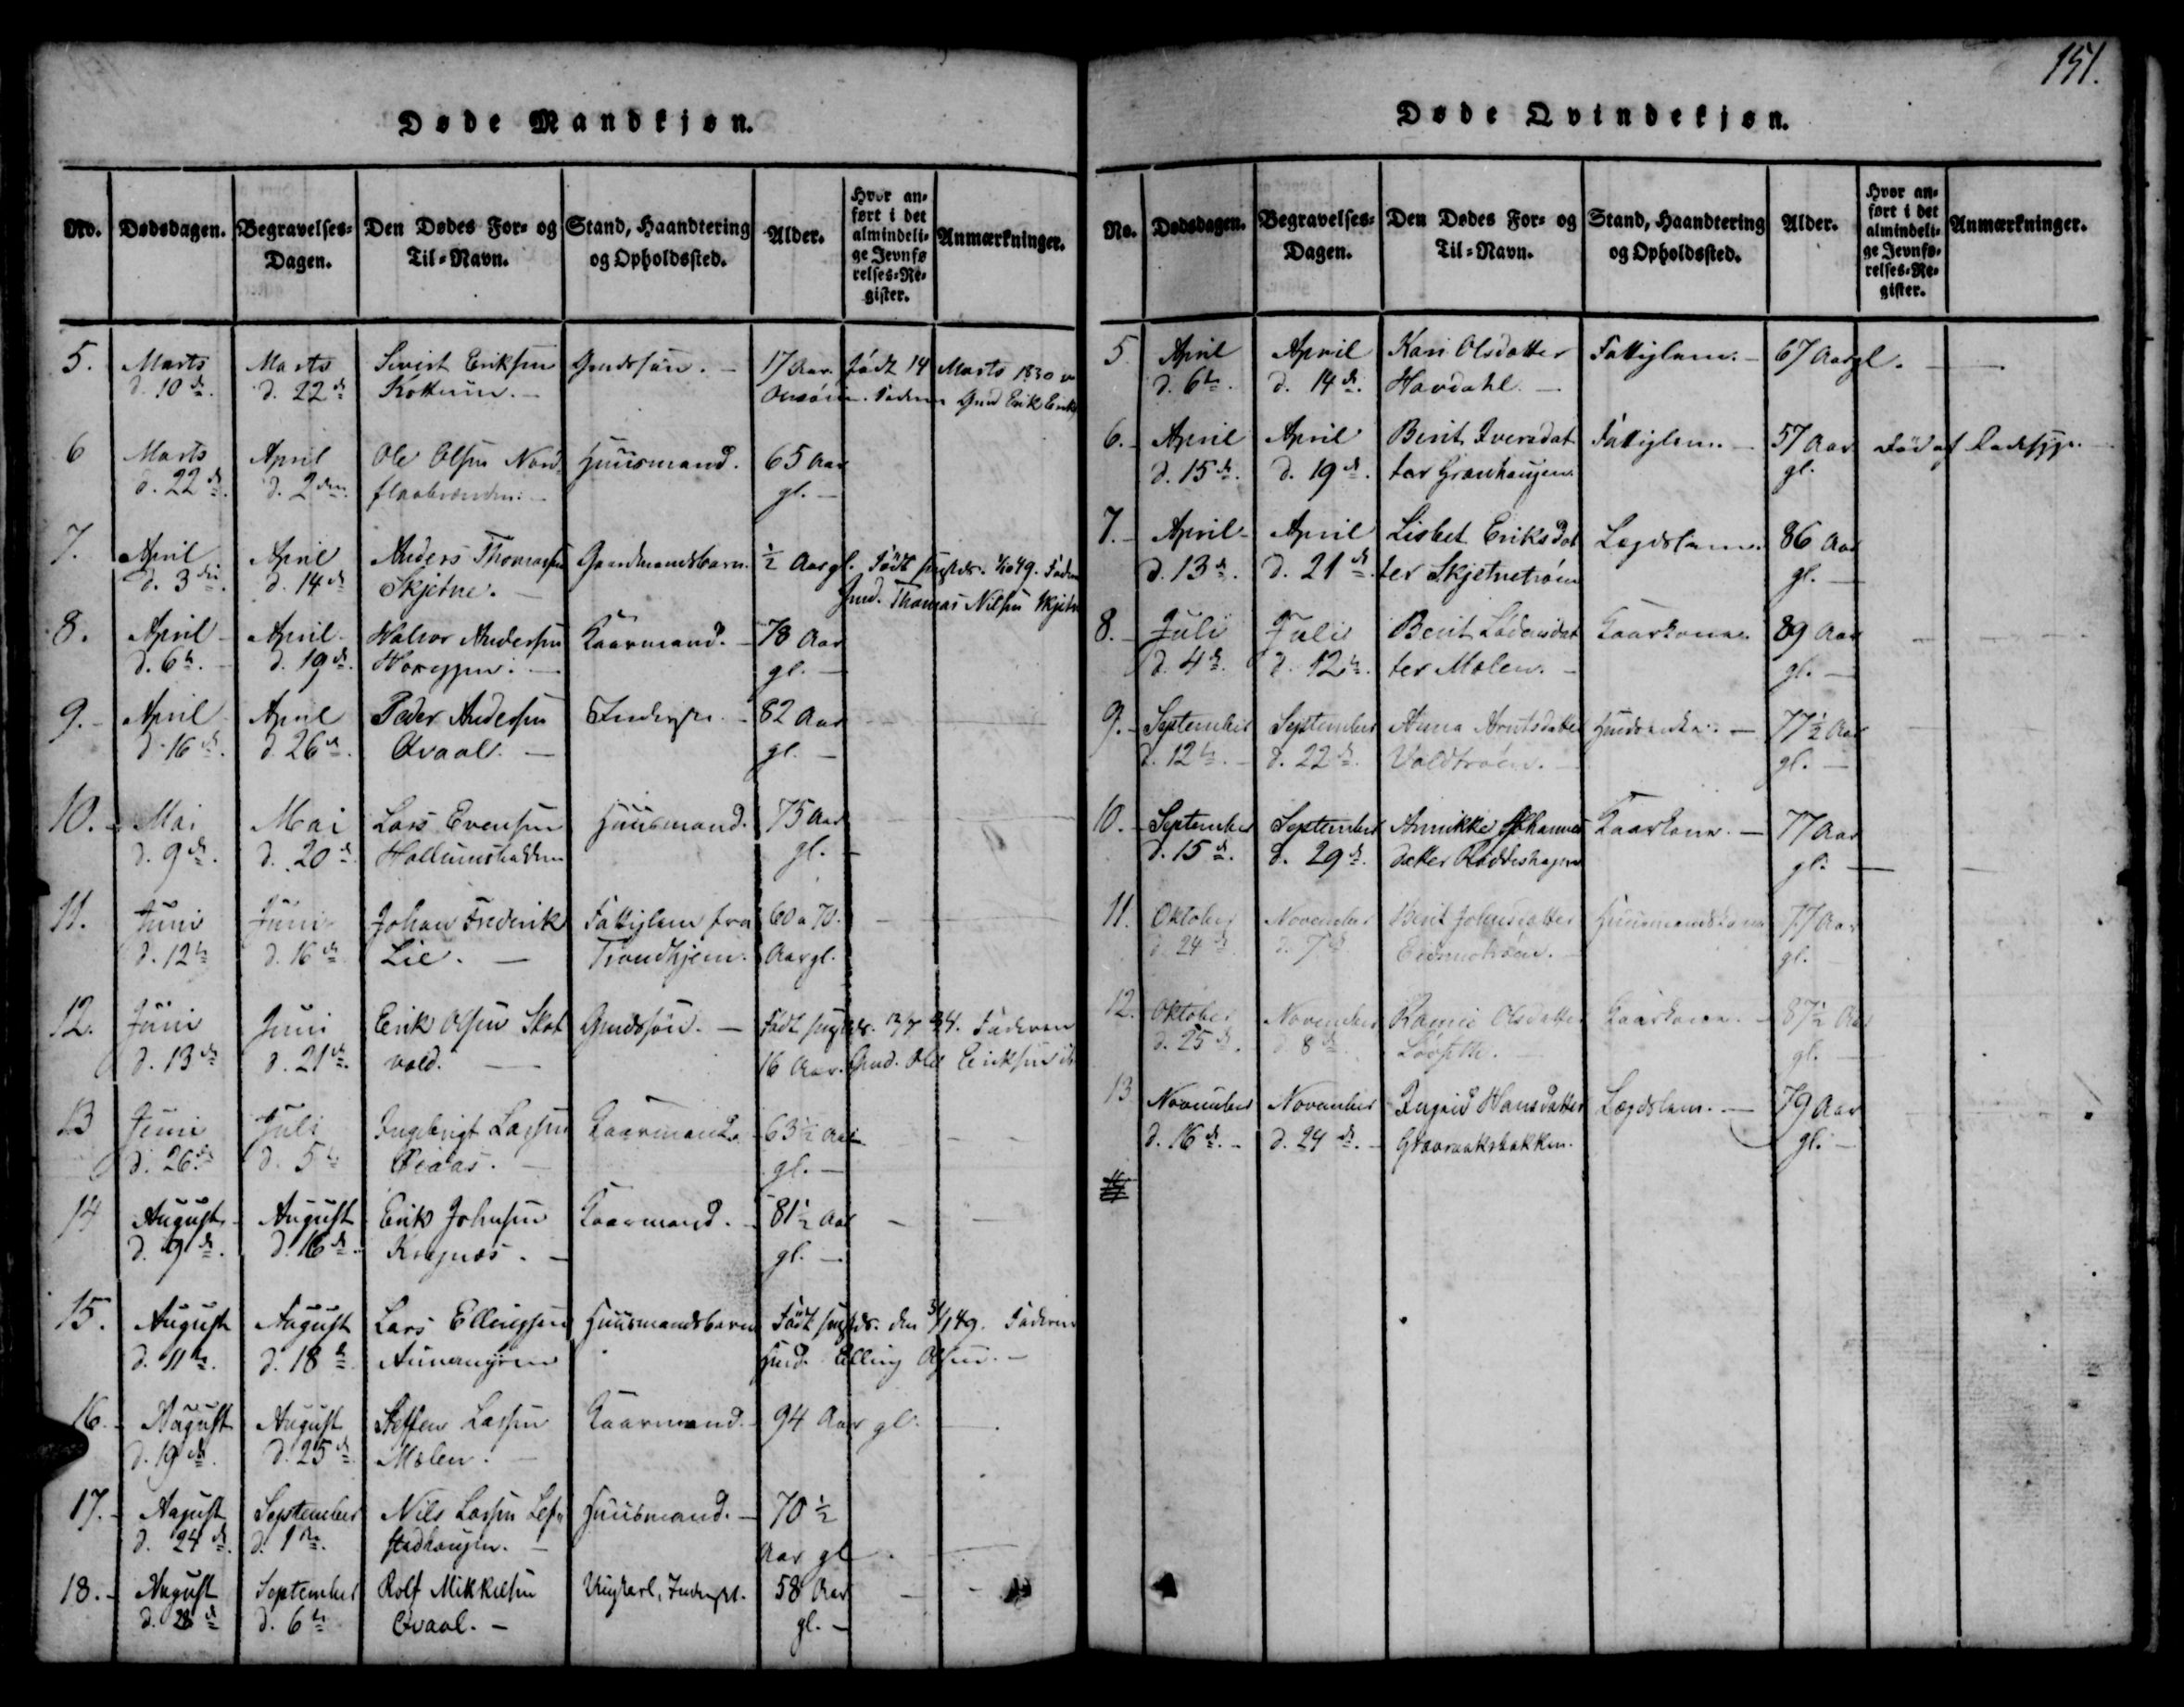 151.
Døde Mandkjøn.
No. Dødsdagen. Begravelses-Dagen. Den Dødes For- og Til-Navn. Stand, Haandtering og Opholdssted. Alder. Hvor anført i det almindelige Jevnførelses-Register. Anmærkninger.
5. Marts Marts Sivert Eriksen Gmdssøn. 17 Aar. født 14 Marts 1830
d. 10de. d. 22de. Faderen Gmd Erik
6 Marts April Ole Olsen Huusmand. 65 Aar
d. 22de. d. 2den. gl.
7. April April Anders Thomassen Gaardmandsbarn. ½ Aar gl. Født
d. 3die. d. 14de Skjetne. Gmd. Thomas Nilsen Skjetne
8. April April Halvor Andersen Kaarmand. 78 Aar
d. 6te. d. 19de. gl.
9. April April Peder Andersen Inderst. 82 Aar
d. 16de. d. 26de. Qvaal. gl.
10. Mai Mai Lars Evensen Huusmand. 75 Aar
d. 9de. d. 20de gl.
11. Juni Juni Johan Frederik Fattiglem fra 60 a 70.
d. 12te d. 16de Lie. Trondhjem. Aar gl.
12. Juni Juni Erik Olsen Skot Gmdssøn. Født Faderen
d. 13de d. 21de. vold. 16 Aar. Gmd. Ole Eriksen
13 Juni Juli Ingebrigt Larsen Kaarmand. 63½ Aar
d. 26de d. 5te gl.
14 August August Erik Johnsen Kaarmand. 81½ Aar
d. 9de. d. 16de. Kregnæs. gl.
15. August August Lars Ellingsen Huusmandsbarn Født den 31/1 49. Faderen
d. 11te. d. 18de Hmd. Elling Olsen.
16. August August Steffen Larsen Kaarmand. 94 Aar gl.
d. 19de. d. 25de Mælen.
17. August September Nils Larsen Huusmand. 70½
d. 24de. d. 1ste. Aar gl.
18. August September Rolf Mikkelsen Inderst. 58 Aar
d. 28de d. 6te Qvaal. gl.
Døde Qvindekjøn.
No. Dødsdagen. Begravelses-Dagen. Den Dødes For- og Til-Navn. Stand, Haandtering og Opholdssted. Alder. Hvor anført i det almindelige Jevnførelses-Register. Anmærkninger.
5 April April Kari Olsdatter Fattiglem. 67 Aar gl.
d. 6te. d. 14de. Havdahl.
6. April April Berit Iversdat Fattiglem. 57 Aar Død af Radesyge.
d. 15de. d. 19de. ter Granhaugen gl.
7. April April Lisbet Eriksdat Lægdslem. 86 Aar
d. 13de. d. 21de. ter Skjetnetrøen gl.
8. Juli Juli Berit Kaarkone. 89 Aar
d. 4de. d. 12te. ter Mælen. gl.
9. September September Anna Arntsdatter 77½ Aar
d. 12te. d. 22de. Voldtrøen. gl.
10. September September Annikke Johannes Kaarkone. 77 Aar
d. 15de. d. 29de. datter gl.
11. Oktober November Berit Johnsdatter Huusmandskone 77 Aar
d. 24de d. 7de gl.
12. Oktober November Olsdatter Kaarkone. 87½ Aar
d. 25de. d. 8de. gl.
13 November November Ingrid Hansdatter Lægdslem. 79 Aar
d. 16de. d. 24de. Gravraaksbakken. gl.